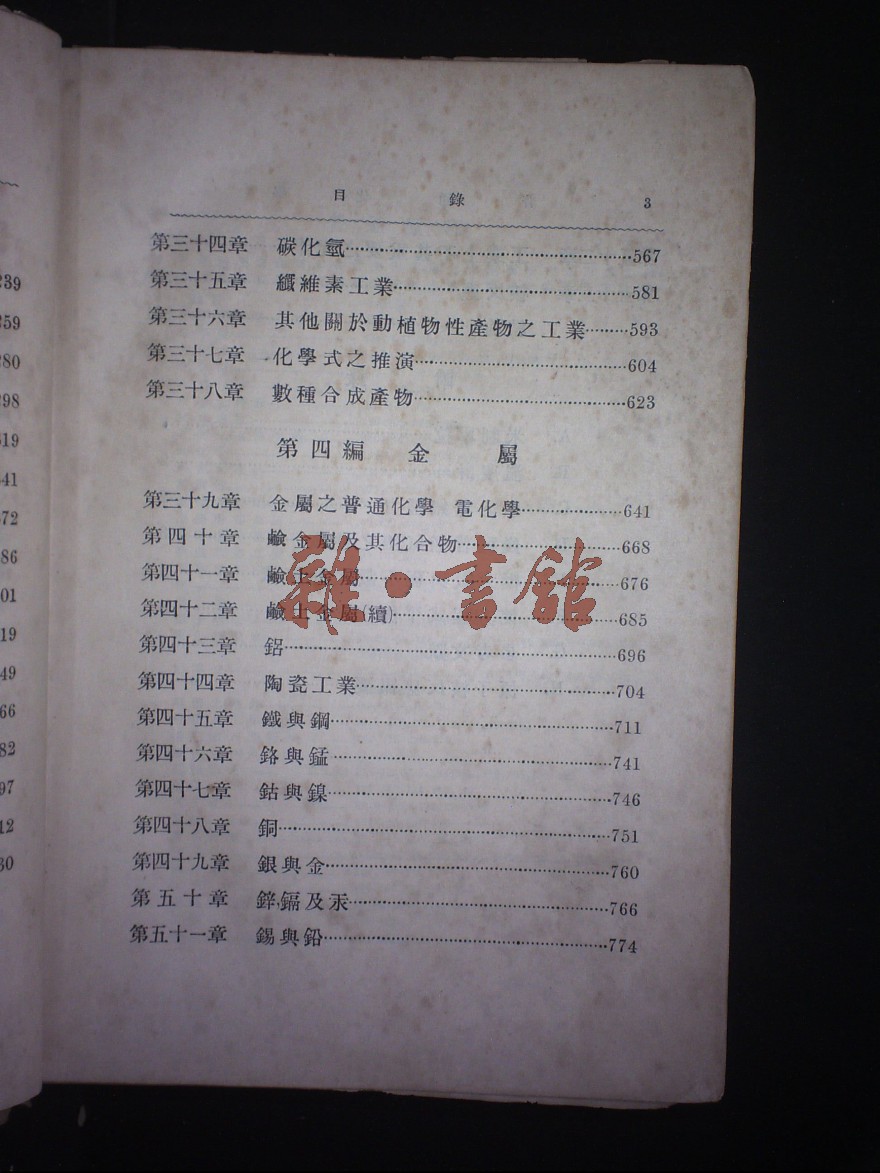 目錄 3
第三十四章 碳化氫 567
第三十五章 纖維素工業 581
第三十六章 其他關於動植物性產物之工業 593
第三十七章 化學式之推演 604
第三十八章 數種合成產物 623
第四編 金屬
第三十九章 金屬之普通化學 電化學 641
第四十章 鹼金屬及其化合物 668
第四十一章 鹼土金屬 676
第四十二章 鹼土金屬(續) 685
第四十三章 鋁 696
第四十四章 陶瓷工業 704
第四十五章 鐵與鋼 711
第四十六章 鉻與錳 741
第四十七章 鈷與鎳 746
第四十八章 銅 751
第四十九章 銀與金 760
第五十章 鋅,鎘及汞 766
第五十一章 錫與鉛 774
雜·書館
239
259
280
298